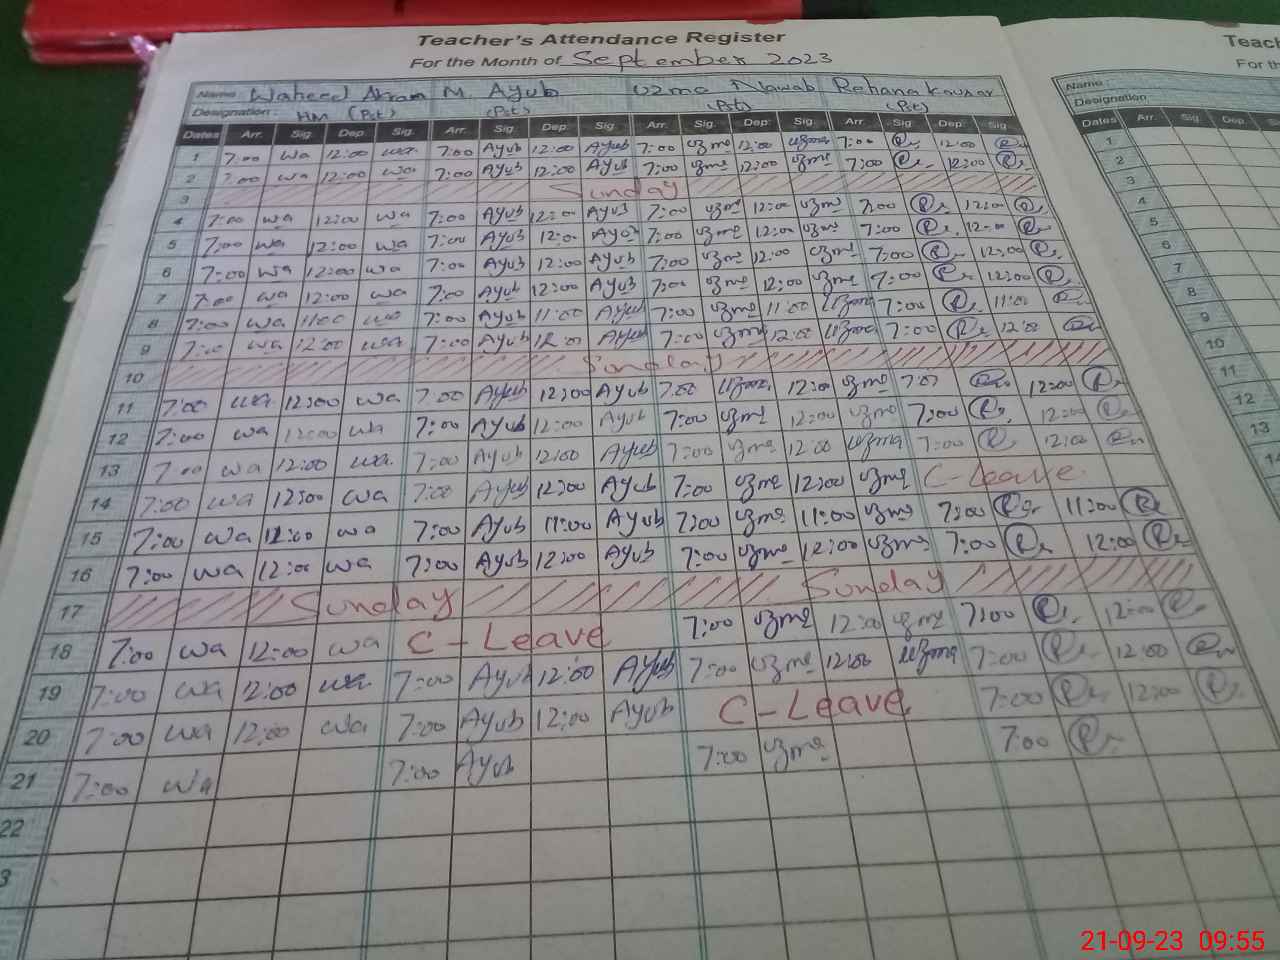 Teacher's Attendance Register
For the Month of September 2023
Name : Waheed Akram M. Ayub Uzma Nawab Rehana Kousar
Designation : HM (Pst) (Pst) (Pst) (Pst)
Dates Arr. Sig. Dep. Sig. Arr. Sig. Dep. Sig. Arr. Sig. Dep. Sig. Arr. Sig. Dep. Sig.
1 7:00 wa 12:00 wa 7:00 Ayub 12:00 Ayub 7:00 uzma 12:00 uzma 7:00 12:00
2 7:00 wa 12:00 wa 7:00 Ayub 12:00 Ayub 7:00 uzma 12:00 uzma 7:00 12:00
3 Sunday
4 7:00 wa 12:00 wa 7:00 Ayub 12:00 Ayub 7:00 uzma 12:00 uzma 7:00 12:00
5 7:00 wa 12:00 wa 7:00 Ayub 12:00 Ayub 7:00 uzma 12:00 uzma 7:00 12:00
6 7:00 wa 12:00 wa 7:00 Ayub 12:00 Ayub 7:00 uzma 12:00 uzma 7:00 12:00
7 7:00 wa 12:00 wa 7:00 Ayub 12:00 Ayub 7:00 uzma 12:00 uzma 7:00 12:00
8 7:00 wa 11:00 wa 7:00 Ayub 11:00 Ayub 7:00 uzma 11:00 uzma 7:00 11:00
9 7:00 wa 12:00 wa 7:00 Ayub 12:00 Ayub 7:00 uzma 12:00 uzma 7:00 12:00
10 Sunday
11 7:00 wa 12:00 wa 7:00 Ayub 12:00 Ayub 7:00 uzma 12:00 uzma 7:00 12:00
12 7:00 wa 12:00 wa 7:00 Ayub 12:00 Ayub 7:00 uzma 12:00 uzma 7:00 12:00
13 7:00 wa 12:00 wa 7:00 Ayub 12:00 Ayub 7:00 uzma 12:00 uzma 7:00 12:00
14 7:00 wa 12:00 wa 7:00 Ayub 12:00 Ayub 7:00 uzma 12:00 uzma C-Leave
15 7:00 wa 11:00 wa 7:00 Ayub 11:00 Ayub 7:00 uzma 11:00 uzma 7:00 11:00
16 7:00 wa 12:00 wa 7:00 Ayub 12:00 Ayub 7:00 uzma 12:00 uzma 7:00 12:00
17 Sunday Sunday
18 7:00 wa 12:00 wa C-Leave 7:00 uzma 12:00 uzma 7:00 12:00
19 7:00 wa 12:00 wa 7:00 Ayub 12:00 Ayub 7:00 uzma 12:00 uzma 7:00 12:00
20 7:00 wa 12:00 wa 7:00 Ayub 12:00 Ayub C-Leave 7:00 12:00
21 7:00 wa 7:00 Ayub 7:00 uzma 7:00
22
3
Teach
For th
Name :
Designation :
Dates Arr. Sig. Dep. S
1
2
3
4
5
6
7
8
9
10
11
12
13
14
21-09-23 09:55